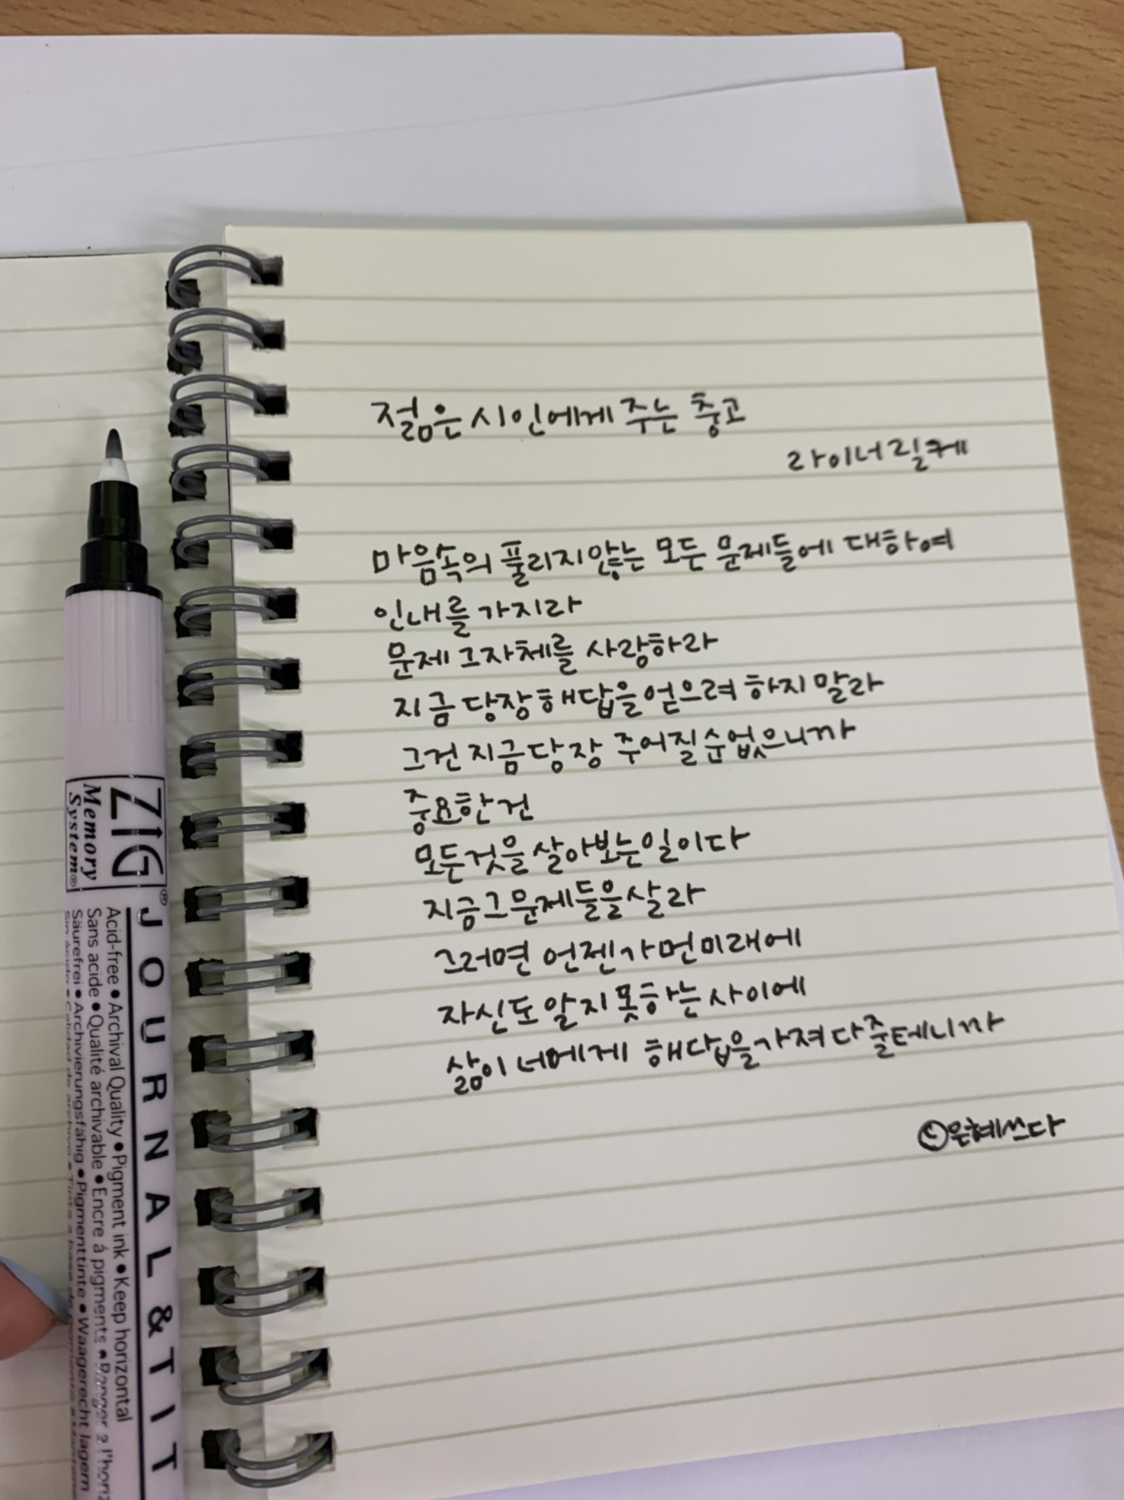 젊은 시인에게 주는 충고
라이너 릴케
마음속의 풀리지 않는 모든 문제들에 대하여
인내를 가지라
문제 그 자체를 사랑하라
지금 당장 해답을 얻으려 하지 말라
그건 지금 당장 주어질 순 없으니까
중요한 건
모든 것을 살아보는 일이다
지금 그 문제들을 살라
그러면 언젠가 먼 미래에
자신도 알지 못하는 사이에
삶이 너에게 해답을 가져다 줄테니까
은혜쓰다
ZIG
Memory
System®
JOURNAL & TIT
Acid-free • Archival Quality • Pigment ink • Keep horizontal
Sans acide • Qualité archivable • Encre à pigments • Ranger à l'horiz
Säurefrei • Archivierungsfähig • Pigmenttinte • Waagerecht lagern